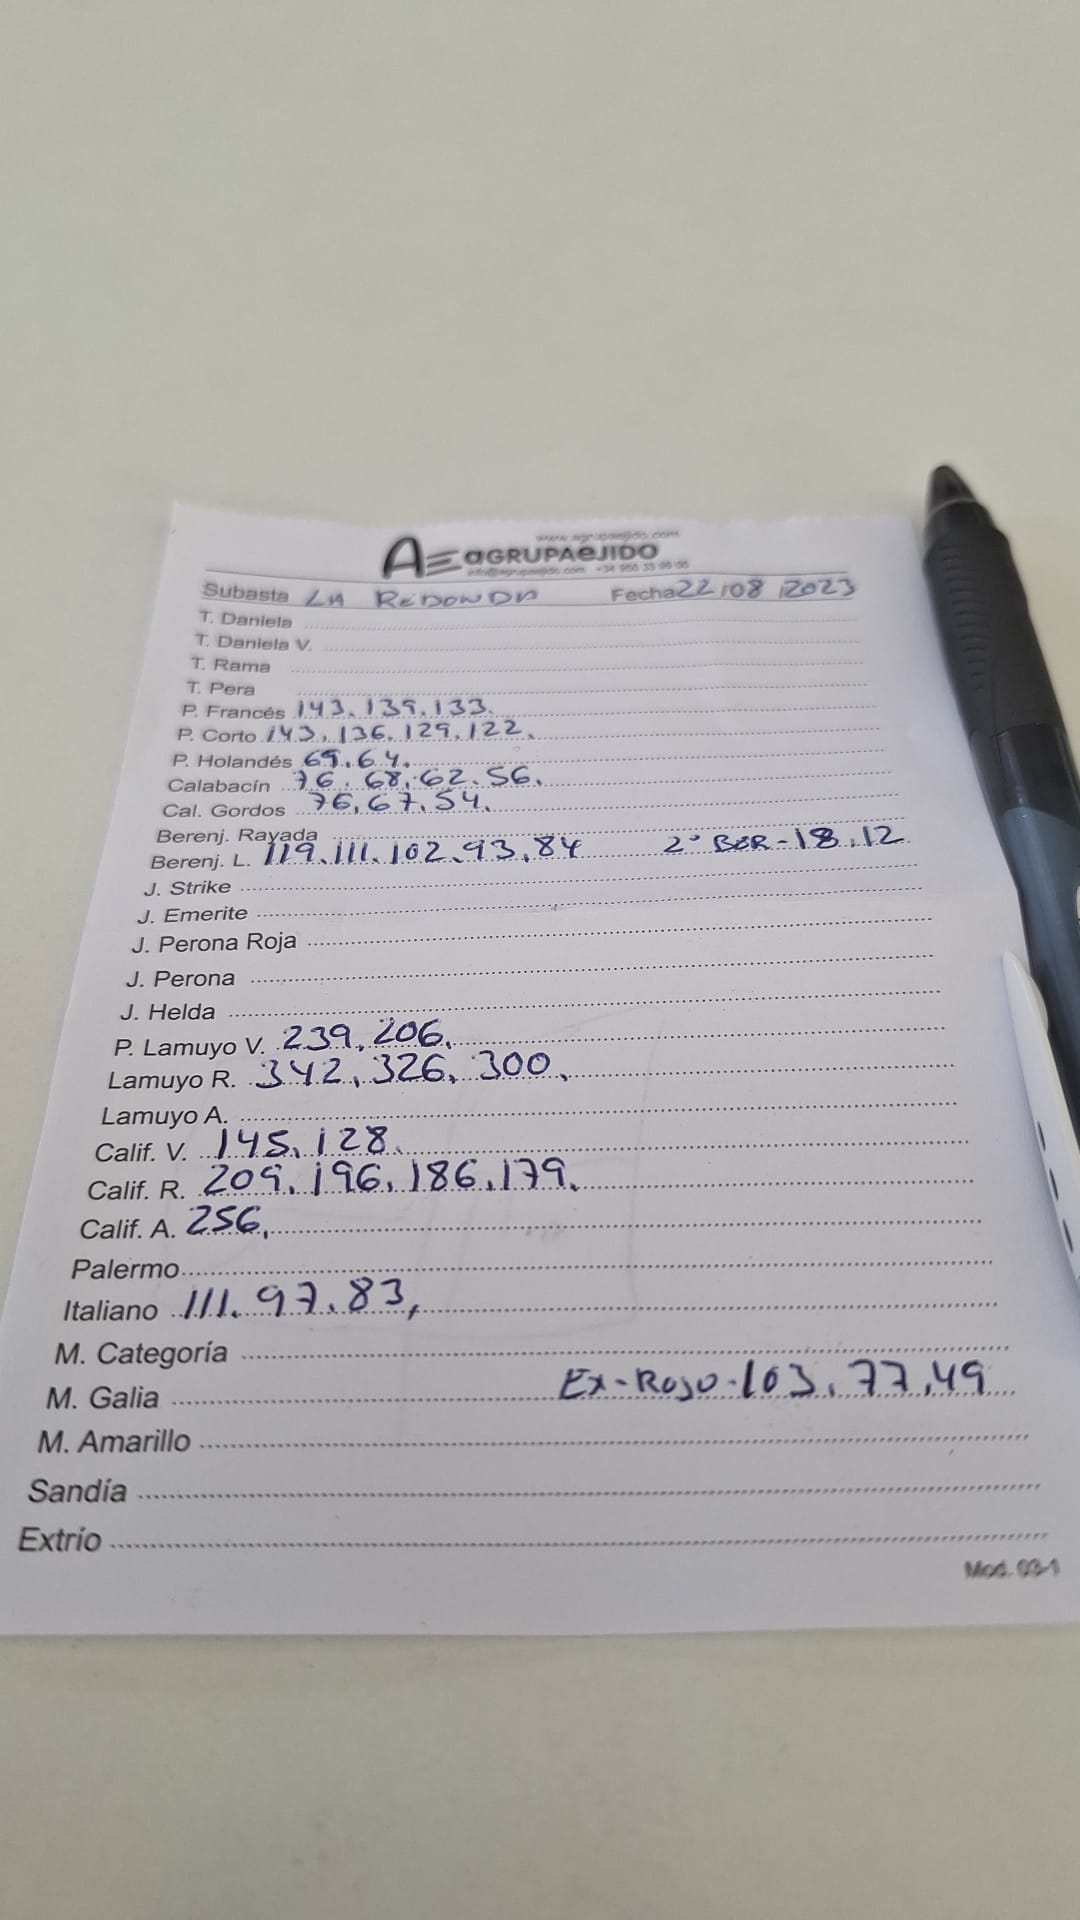 www.agrupaejido.com
AE aGRUPAeJIDO
info@agrupaejido.com +34 950
Subasta LA REDONDA Fecha 22/08/2023
T. Daniela
T. Daniela V.
T. Rama
T. Pera
P. Francés 143, 139, 133.
P. Corto 143, 136, 129, 122.
P. Holandés 69, 64.
Calabacín 76, 68, 62, 56.
Cal. Gordos 76, 67, 54.
Berenj. Rayada
Berenj. L. 119, 111, 102, 93, 84 2ª BER - 18, 12
J. Strike
J. Emerite
J. Perona Roja
J. Perona
J. Helda
P. Lamuyo V. 239, 206.
Lamuyo R. 342, 326, 300,
Lamuyo A.
Calif. V. 145, 128.
Calif. R. 209, 196, 186, 179.
Calif. A. 256,
Palermo
Italiano 111, 97, 83,
M. Categoría
M. Galia Ex-Rojo - 103, 77, 49
M. Amarillo
Sandía
Extrío
Mod. 03-1